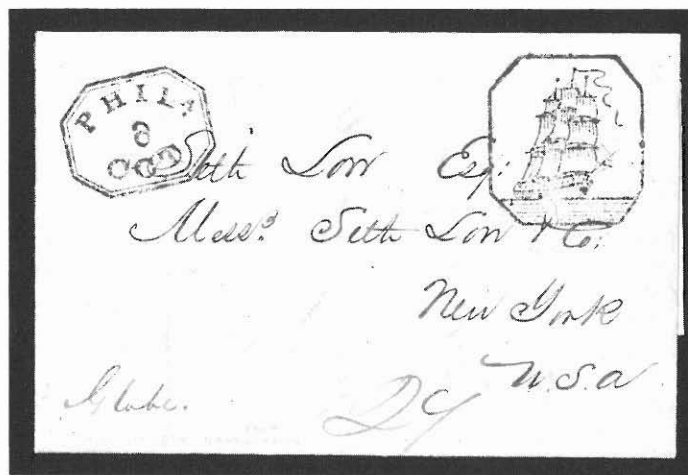 PHILA
6
OCT
Seth Low Esq:
Messrs Seth Low & Co:
New York
U.S.A
Globe.
27